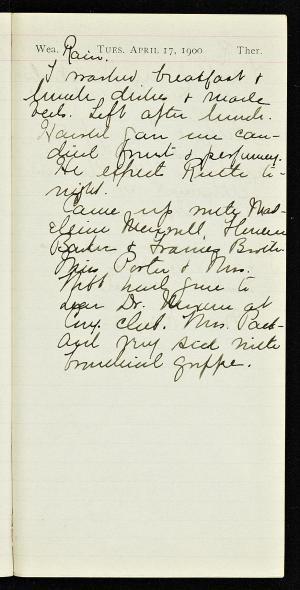 Wea. Rain. TUES. APRIL 17, 1900 Ther.
I washed breakfast &
lunch dishes & made
beds. Left after lunch.
Harold gave me can-
died fruit & perfumery.
We expect Ruth to-
night.
Came up with Mad-
eleine Merrill, Florence
Baker & Frances Booth.
Miss Porter & Mrs.
had gone to
hear Dr. at
Cong. club. Mrs. Pack-
ard very sick with
bronchial grippe.